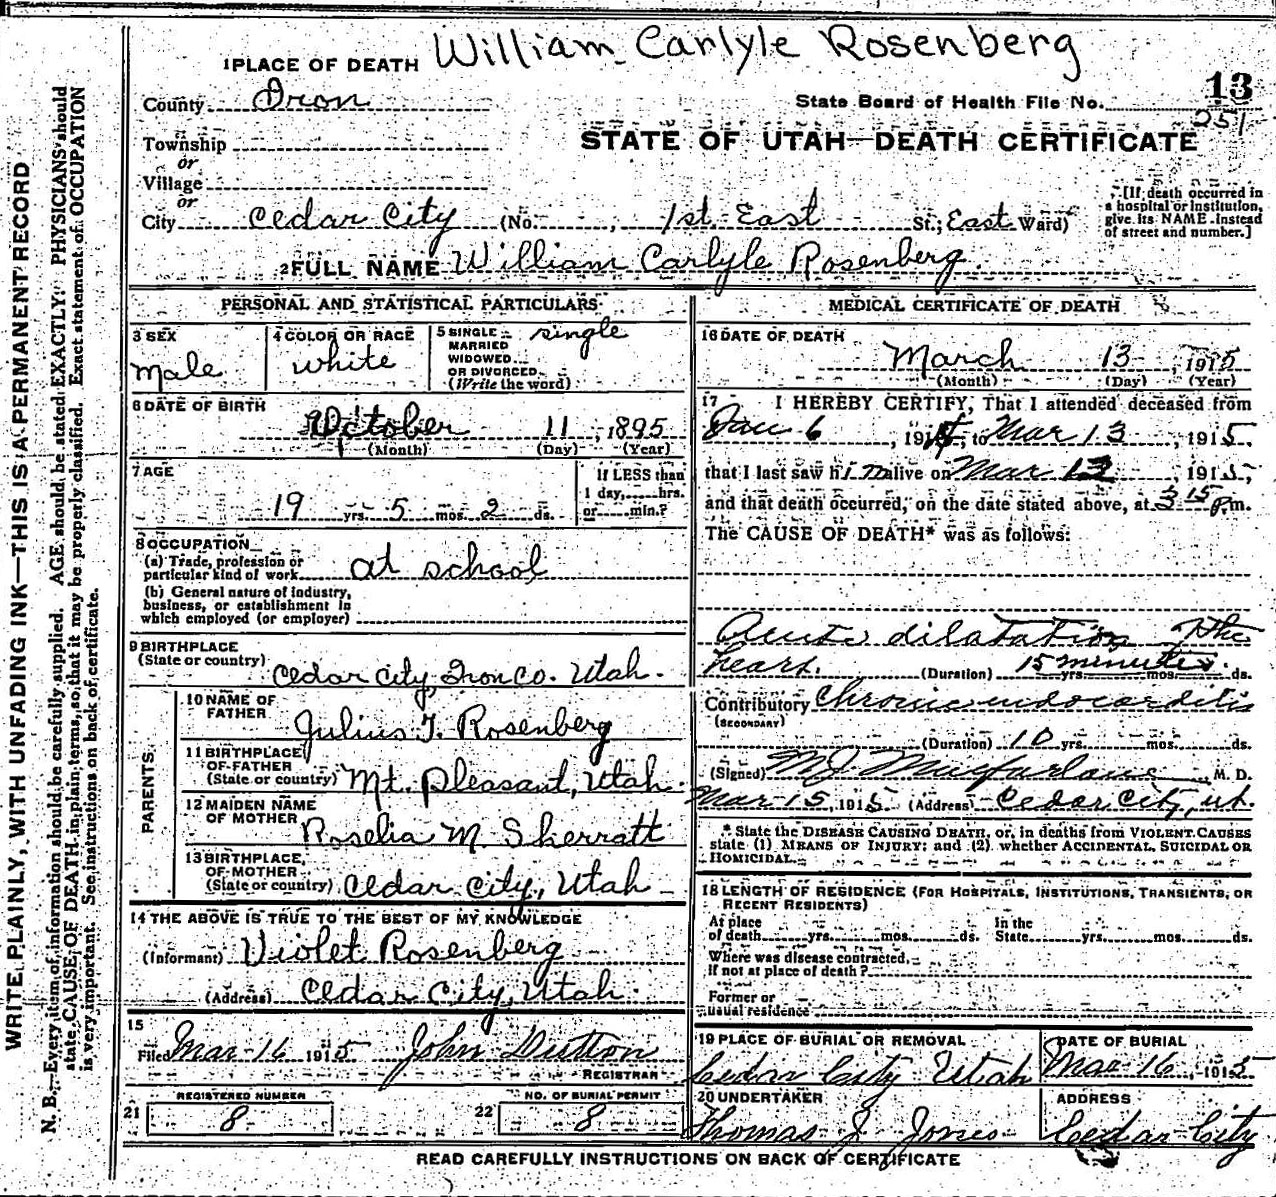 William Carlyle Rosenberg
1 PLACE OF DEATH
13
County Iron
State Board of Health File No. 251
Township
or
STATE OF UTAH—DEATH CERTIFICATE
Village
or
City Cedar City (No. , 1st East St.; East Ward)
[If death occurred in
a hospital or institution,
give its NAME instead
of street and number.]
2 FULL NAME William Carlyle Rosenberg
PERSONAL AND STATISTICAL PARTICULARS
3 SEX
male
4 COLOR OR RACE
white
5 SINGLE single
MARRIED
WIDOWED
OR DIVORCED
(Write the word)
6 DATE OF BIRTH
October 11, 1895
(Month) (Day) (Year)
7 AGE
19 yrs. 5 mos. 2 ds.
If LESS than
1 day, hrs.
or min.?
8 OCCUPATION
(a) Trade, profession or
particular kind of work at school
(b) General nature of industry,
business, or establishment in
which employed (or employer)
9 BIRTHPLACE
(State or country) Cedar City, Iron Co. Utah.
PARENTS
10 NAME OF
FATHER
Julius T. Rosenberg
11 BIRTHPLACE
OF FATHER
(State or country) Mt. Pleasant, Utah
12 MAIDEN NAME
OF MOTHER
Roselia M. Sherratt
13 BIRTHPLACE
OF MOTHER
(State or country) Cedar City, Utah
14 THE ABOVE IS TRUE TO THE BEST OF MY KNOWLEDGE
(Informant) Violet Rosenberg
(Address) Cedar City, Utah.
15
Filed Mar 16 1915 John Dutton
REGISTRAR
REGISTERED NUMBER
21 8
NO. OF BURIAL PERMIT
22 8
MEDICAL CERTIFICATE OF DEATH
16 DATE OF DEATH
March 13, 1915
(Month) (Day) (Year)
17 I HEREBY CERTIFY, That I attended deceased from
Jan 6, 191 , to Mar 13, 1915,
that I last saw him alive on Mar 13, 1915,
and that death occurred, on the date stated above, at 3 15 P.m.
The CAUSE OF DEATH* was as follows:
Acute dilatation of the
heart. (Duration) 15 minutes. yrs. mos. ds.
Contributory Chronic endocarditis
(SECONDARY)
(Duration) 10 yrs. mos. ds.
(Signed) M J Macfarlane, M. D.
Mar 15, 1915 (Address) Cedar City, Ut.
* State the DISEASE CAUSING DEATH, or, in deaths from VIOLENT CAUSES
state (1) MEANS OF INJURY; and (2) whether ACCIDENTAL, SUICIDAL OR
HOMICIDAL.
18 LENGTH OF RESIDENCE (FOR HOSPITALS, INSTITUTIONS, TRANSIENTS, OR
RECENT RESIDENTS)
At place
of death yrs. mos. ds.
In the
State yrs. mos. ds.
Where was disease contracted,
if not at place of death?
Former or
usual residence
19 PLACE OF BURIAL OR REMOVAL
Cedar City Utah
DATE OF BURIAL
Mar 16, 1915
20 UNDERTAKER
Thomas J. Jones
ADDRESS
Cedar City
READ CAREFULLY INSTRUCTIONS ON BACK OF CERTIFICATE
WRITE PLAINLY, WITH UNFADING INK—THIS IS A PERMANENT RECORD
N. B.—Every item of information should be carefully supplied. AGE should be stated EXACTLY. PHYSICIANS should
state CAUSE OF DEATH in plain terms, so that it may be properly classified. Exact statement of OCCUPATION
is very important. See instructions on back of certificate.